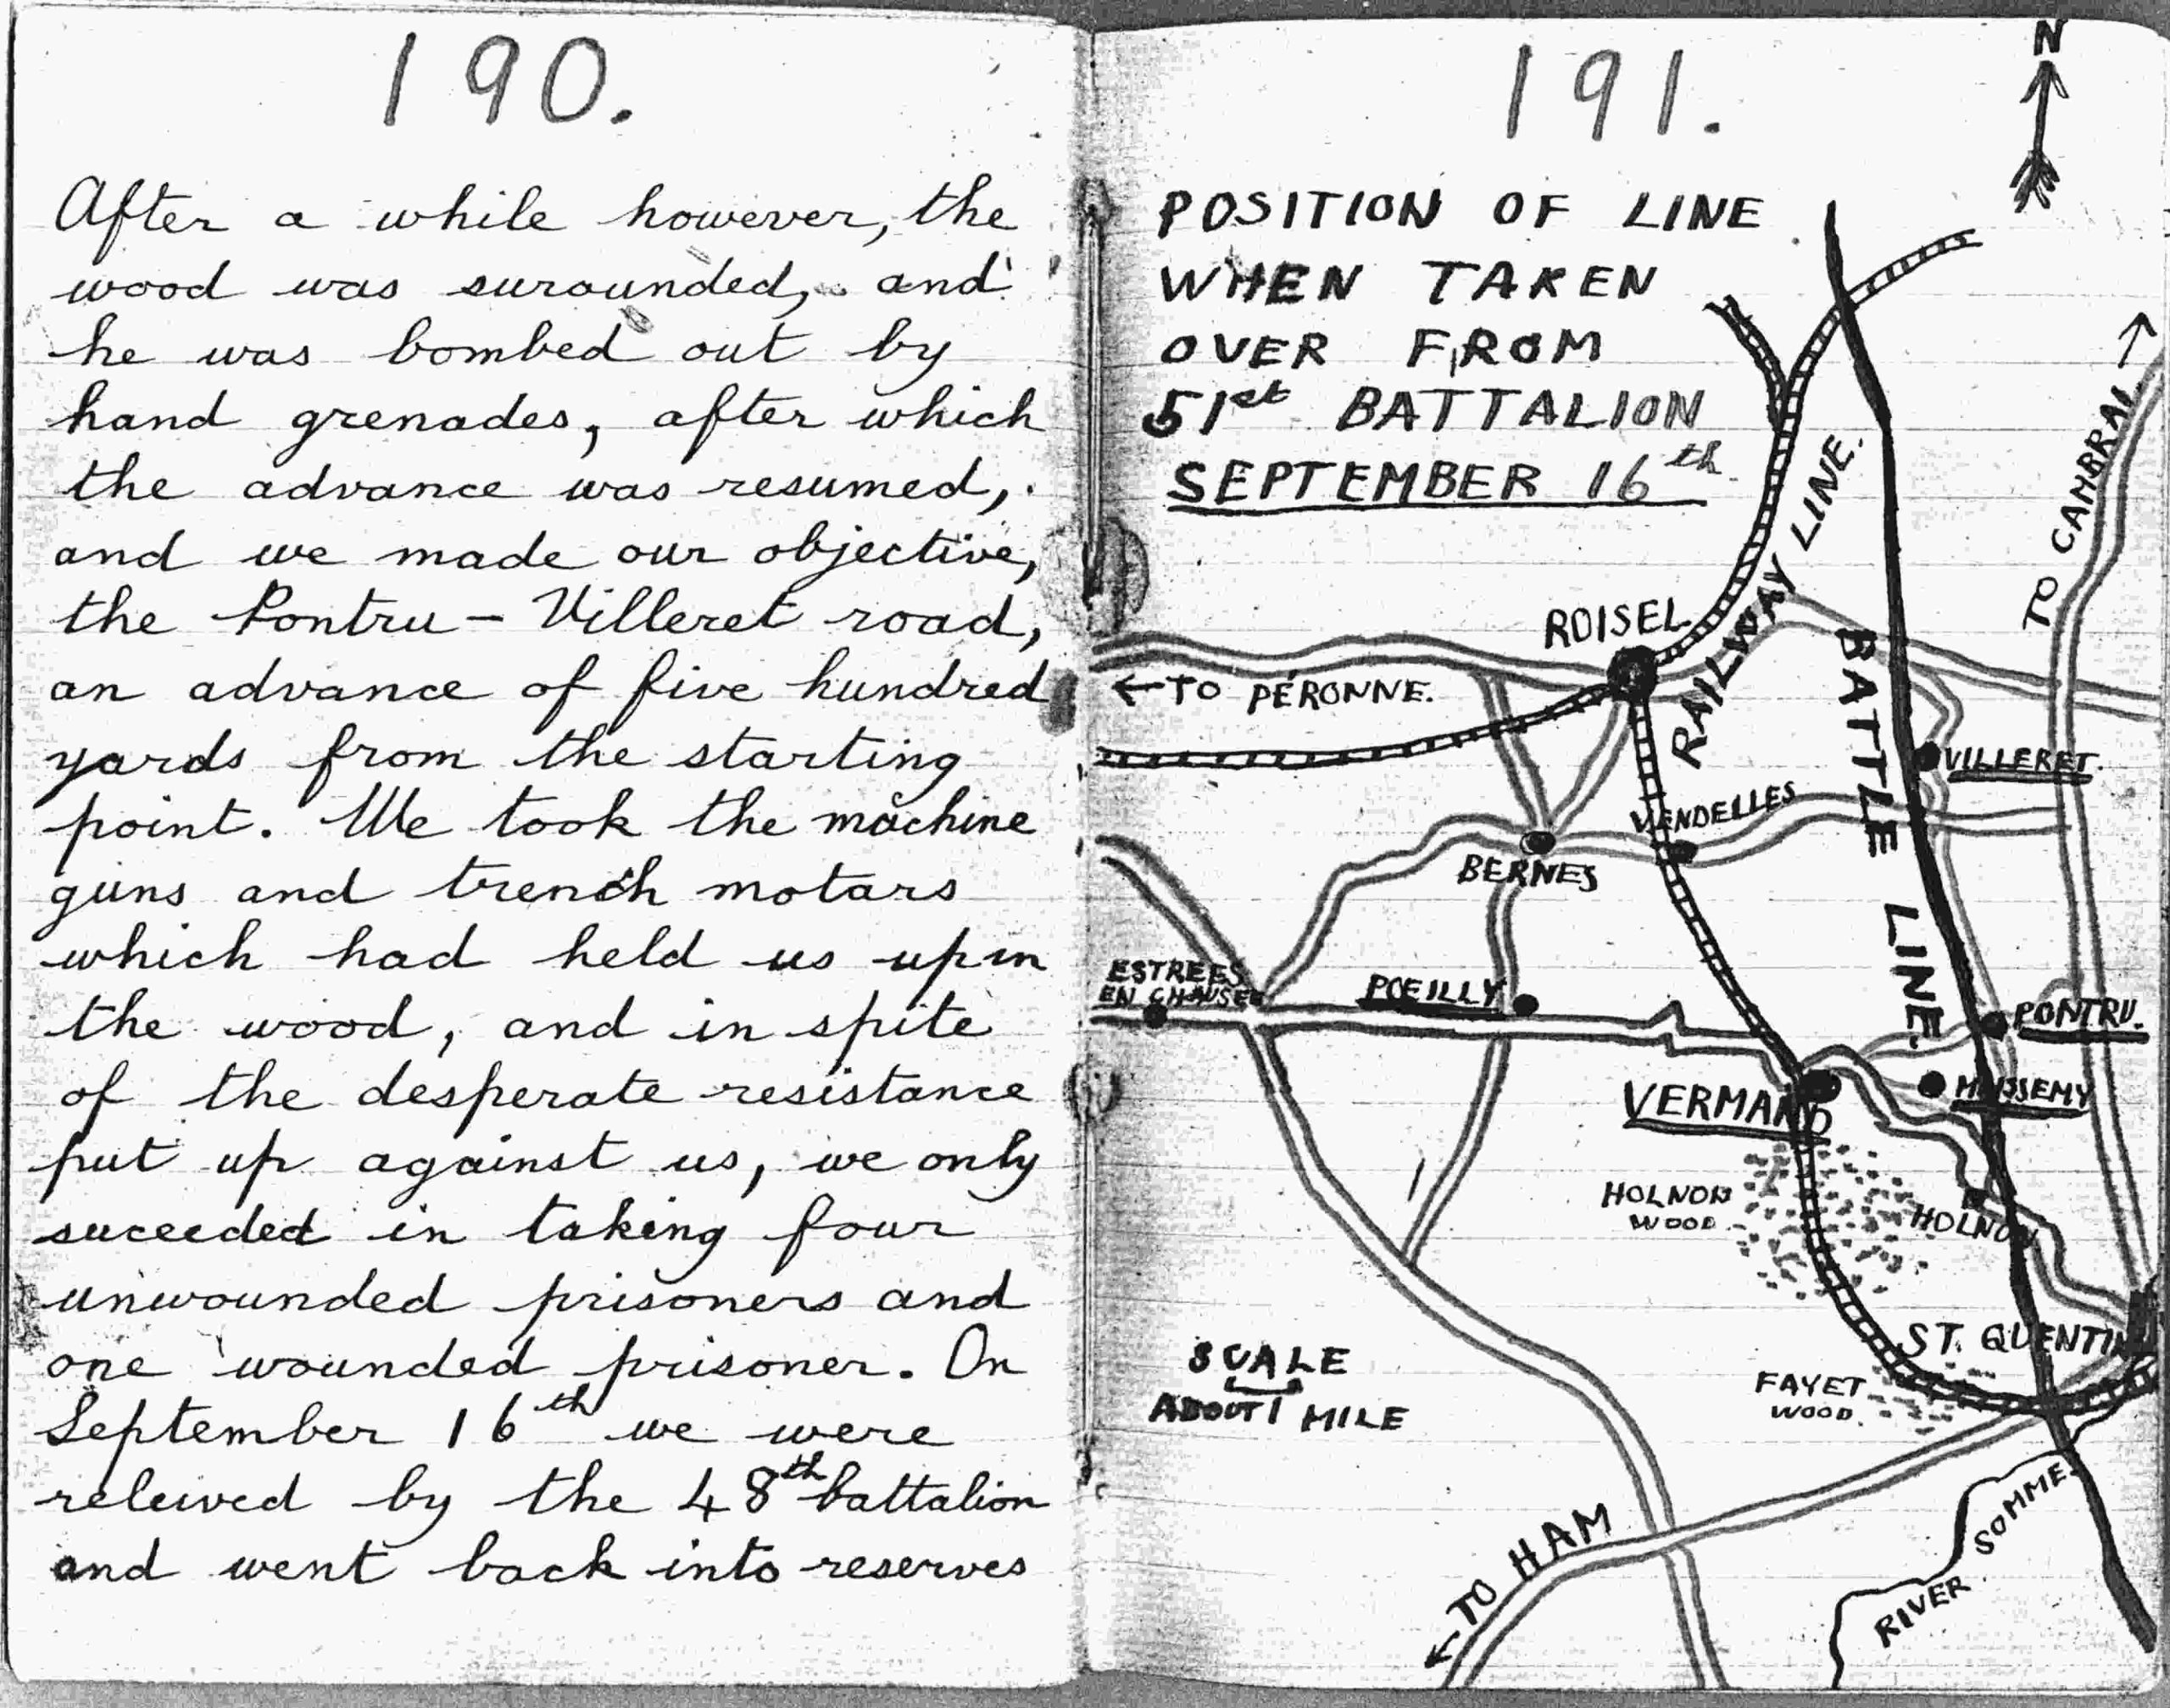 190.
After a while however, the
wood was surounded, and
he was bombed out by
hand grenades, after which
the advance was resumed,
and we made our objective,
the Pontru - Villeret road,
an advance of five hundred
yards from the starting
point. We took the machine
guns and trench motars
which had held us up in
the wood, and in spite
of the desperate resistance
put up against us, we only
suceeded in taking four
unwounded prisoners and
one wounded prisoner. On
September 16th we were
releived by the 48th battalion
and went back into reserves
191.
N
POSITION OF LINE
WHEN TAKEN
OVER FROM
51st BATTALION
SEPTEMBER 16th
TO CAMBRAI
RAILWAY LINE.
ROISEL
BATTLE LINE
← TO PÉRONNE.
VILLERET.
VENDELLES
BERNES
ESTREES
EN CHAUSEE
POEILLY
PONTRU.
VERMAND
MAISSEMY
HOLNON
WOOD.
HOLNON
ST. QUENTIN
SCALE
ABOUT 1 MILE
FAYET
WOOD.
← TO HAM
RIVER SOMME.